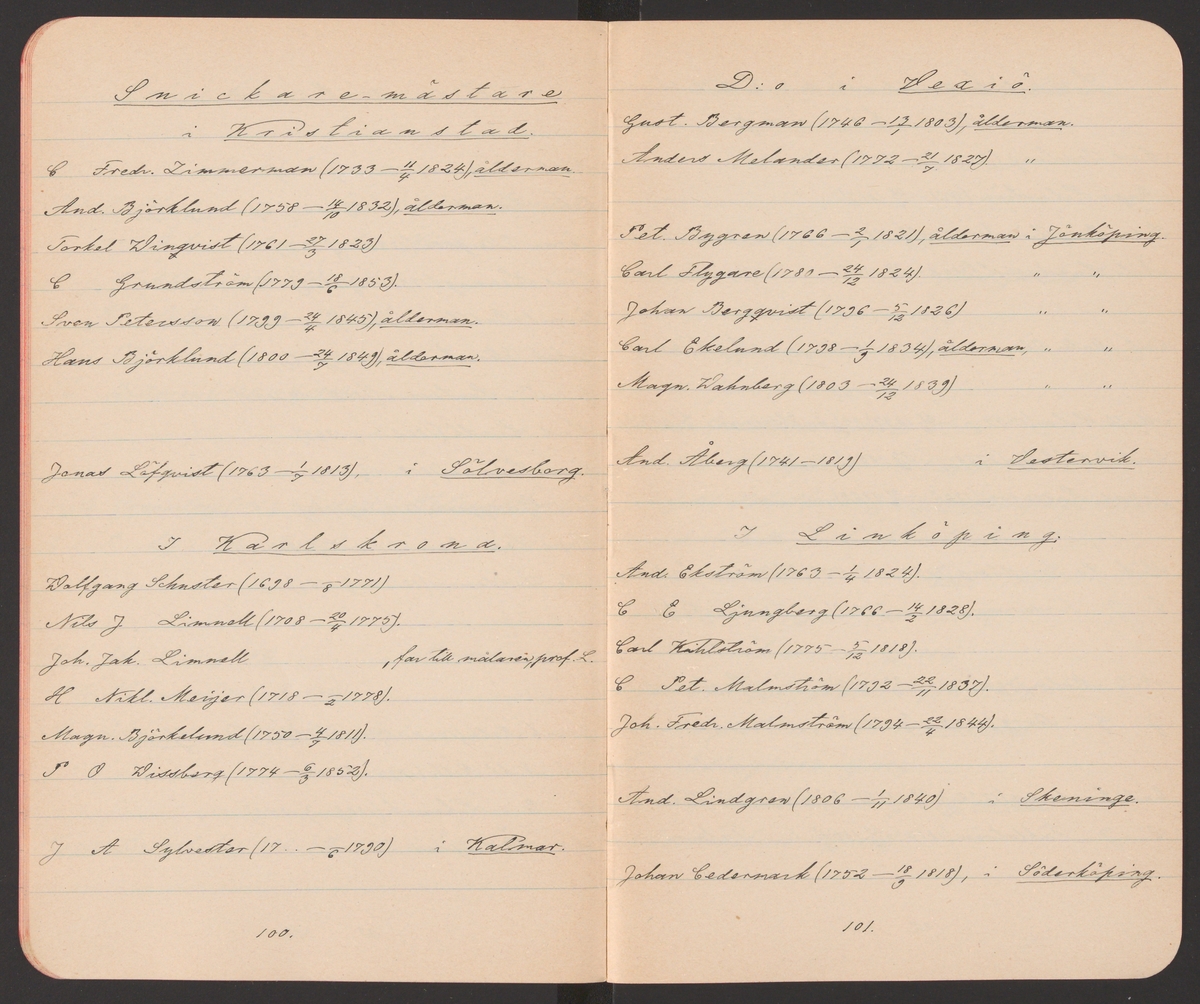 Snickare-mästare
i Kristianstad.
C Fredr. Zimmerman (1733 – 11/4 1824), ålderman.
And. Björklund (1758 – 14/10 1832), ålderman.
Torkel Winqvist (1761 – 27/3 1823)
C Grundström (1779 – 18/6 1853).
Sven Petersson (1799 – 24/4 1845), ålderman.
Hans Björklund (1800 – 24/7 1849), ålderman.
Jonas Löfqvist (1763 – 1/7 1813), i Sölvesborg.
I Karlskrona.
Wolfgang Schuster (1698 – /8 1771)
Nils J Limnell (1708 – 20/4 1775).
Joh. Jak. Limnell , far till målaren, prof. L.
H Nikl. Meijer (1718 – /2 1778).
Magn. Björkelund (1750 – 4/7 1811).
P O Wissberg (1774 – 6/3 1852).
J A Sylvester (17.. – /6 1790) i Kalmar.
100.
D:o i Vexiö.
Gust. Bergman (1746 – 13/7 1803), ålderman.
Anders Melander (1772 – 21/7 1827) "
Pet. Bygren (1766 – 2/1 1821), ålderman i Jönköping.
Carl Flygare (1780 – 24/12 1824). " "
Johan Bergqvist (1796 – 5/12 1826) " "
Carl Ekelund (1798 – 1/9 1834), ålderman, " "
Magn. Wahnberg (1803 – 24/12 1839) " "
And. Åberg (1741–1819) i Vestervik.
I Linköping.
And. Ekström (1763 – 1/4 1824).
C E Ljungberg (1766 – 14/2 1828).
Carl Kihlström (1775 – 5/12 1818).
C Pet. Malmström (1792 – 22/11 1837).
Joh. Fredr. Malmström (1794 – 22/4 1844).
And. Lindgren (1806 – 1/11 1840) i Skeninge.
Johan Cedermark (1752 – 18/9 1818), i Söderköping.
101.